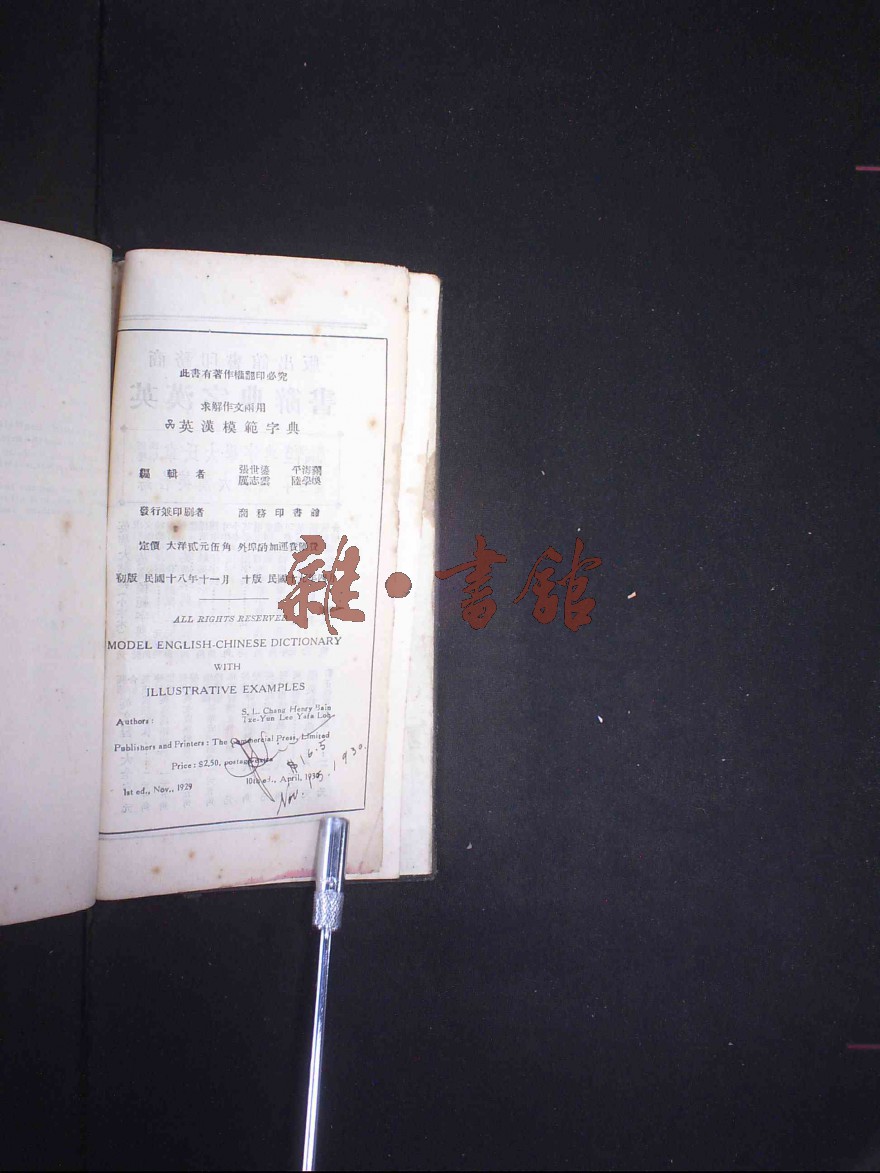 此書有著作權翻印必究
求解作文兩用
英漢模範字典
編輯者 張世鎏 平海瀾
厲志雲 陸學煥
發行兼印刷者 商務印書館
定價 大洋貳元伍角 外埠酌加運費匯費
初版 民國十八年十一月 十版 民國十九年四月
ALL RIGHTS RESERVED
MODEL ENGLISH-CHINESE DICTIONARY
WITH
ILLUSTRATIVE EXAMPLES
Authors: S. L. Chang Henry Bain
Tze-Yun Lee Yafa Loh
Publishers and Printers: The Commercial Press, Limited
Price: $2.50, postage extra
$16.5
1st ed., Nov., 1929 10th ed., April, 1930
Nov. 15. 1930.
雜·書館